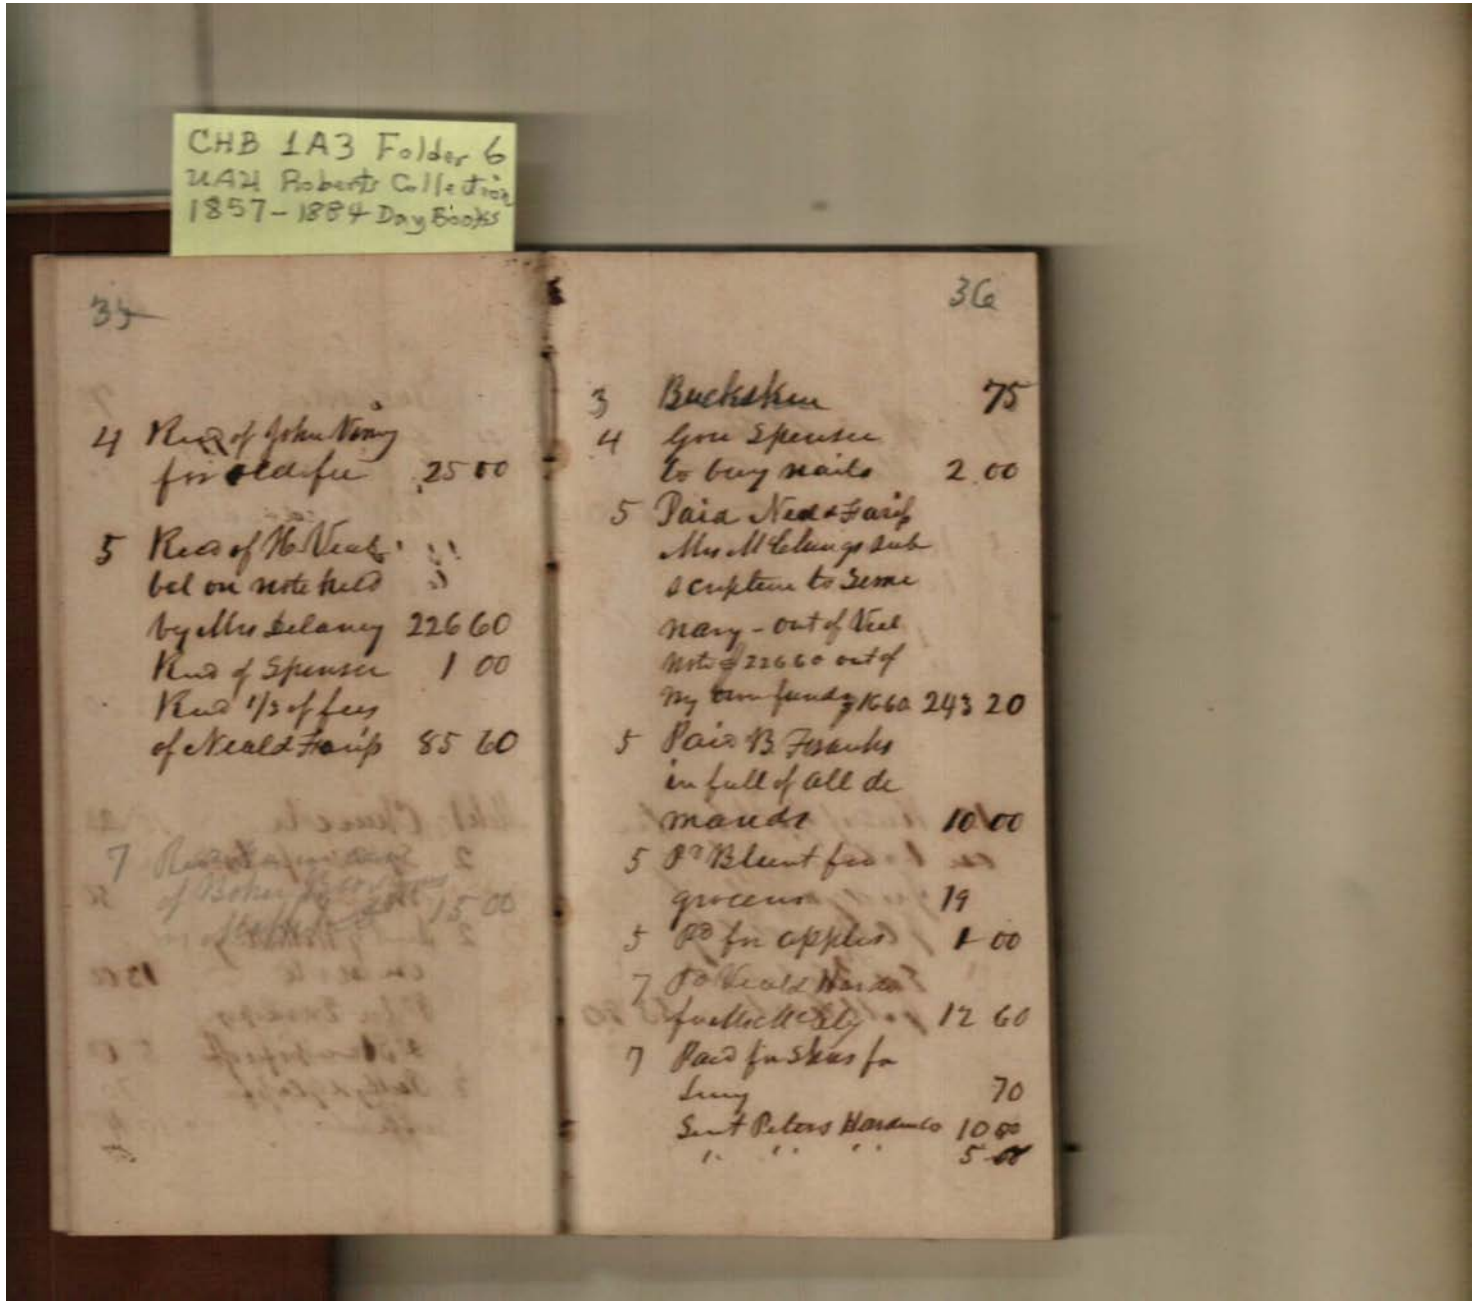 CHB 1A3 Folder 6
UAH Roberts Collection
1857-1884 Day Books
35
4 Recd of John
for old fee 25 00
5 Recd of
bal on note held
by Mrs Delaney 226 60
Recd of Spenser 1 00
Recd 1/3 of fees
of Neal & 85 60
7
of 15 00
36
3 Buckskin 75
4 Gave Spenser
to buy nails 2.00
5 Paid
Mrs McClungs sub
scription to Semi
nary - out of Veal
note of 226 60 out of
my own funds 16 60 243 20
5 Paid B Franks
in full of all de
mands 10 00
5 Pd Blunt for
19
5 Pd for apples 1 00
7 Pd
for 12 60
7 Paid for Shoes for
Lucy 70
Sent Peters 10 00
" " " 5 00